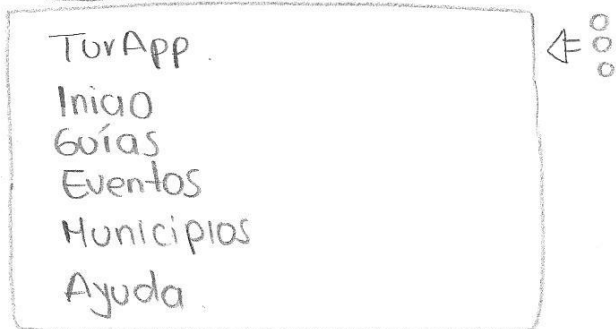 TurApp.
Inicio
Guías
Eventos
Municipios
Ayuda.